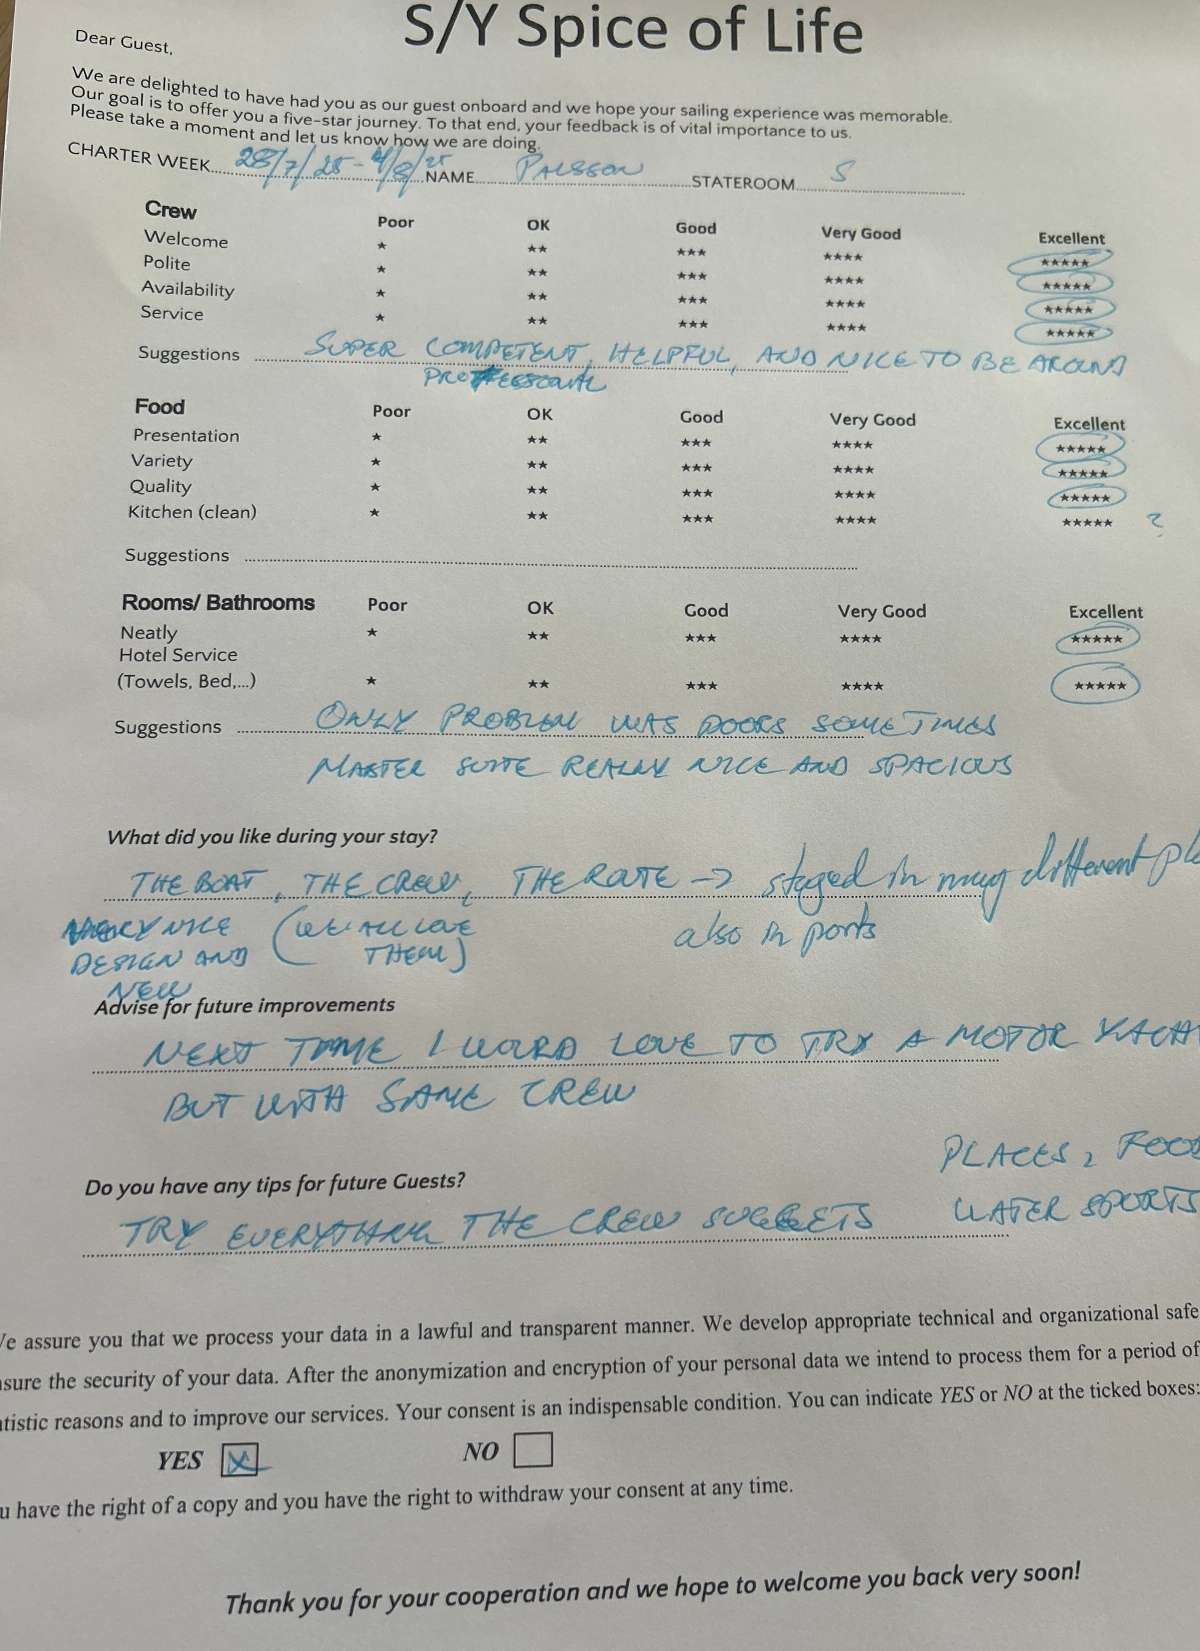 S/Y Spice of Life
Dear Guest,
We are delighted to have had you as our guest onboard and we hope your sailing experience was memorable.
Our goal is to offer you a five-star journey. To that end, your feedback is of vital importance to us.
Please take a moment and let us know how we are doing.
CHARTER WEEK 28/7/25 - 4/8/25 NAME PALSSON STATEROOM 5
Crew Poor OK Good Very Good Excellent
Welcome ★ ★★ ★★★ ★★★★ ★★★★★
Polite ★ ★★ ★★★ ★★★★ ★★★★★
Availability ★ ★★ ★★★ ★★★★ ★★★★★
Service ★ ★★ ★★★ ★★★★ ★★★★★
Suggestions SUPER COMPETENT, HELPFUL, AND NICE TO BE AROUND
Food Poor OK Good Very Good Excellent
Presentation ★ ★★ ★★★ ★★★★ ★★★★★
Variety ★ ★★ ★★★ ★★★★ ★★★★★
Quality ★ ★★ ★★★ ★★★★ ★★★★★
Kitchen (clean) ★ ★★ ★★★ ★★★★ ★★★★★ ?
Suggestions
Rooms/ Bathrooms Poor OK Good Very Good Excellent
Neatly ★ ★★ ★★★ ★★★★ ★★★★★
Hotel Service
(Towels, Bed,...) ★ ★★ ★★★ ★★★★ ★★★★★
Suggestions ONLY PROBLEM WAS DOORS SOMETIMES
MASTER SUITE REALLY NICE AND SPACIOUS
What did you like during your stay?
THE BOAT, THE CREW, THE ROUTE → stayed in many different
VERY NICE (WE ALL LOVE also in ports
DESIGN AND THEM)
NEW
Advise for future improvements
NEXT TIME I WOULD LOVE TO TRY A MOTOR YACH
BUT WITH SAME CREW
PLACES, FOOD
Do you have any tips for future Guests?
TRY EVERYTHING THE CREW SUGGETS WATER SPORTS
We assure you that we process your data in a lawful and transparent manner. We develop appropriate technical and organizational safe
nsure the security of your data. After the anonymization and encryption of your personal data we intend to process them for a period of
atistic reasons and to improve our services. Your consent is an indispensable condition. You can indicate YES or NO at the ticked boxes:
YES X NO
u have the right of a copy and you have the right to withdraw your consent at any time.
Thank you for your cooperation and we hope to welcome you back very soon!